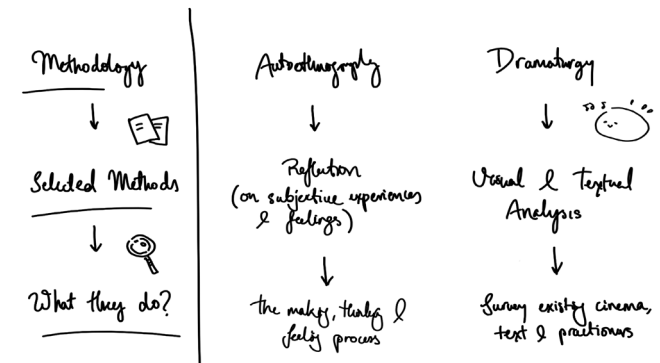 Methodology
Selected Methods
What they do?
Autoethnography
Reflection
(on subjective experiences
& feelings)
the making, thinking &
feeling process
Dramaturgy
Visual & Textual
Analysis
Survey existing cinema,
text & practioners